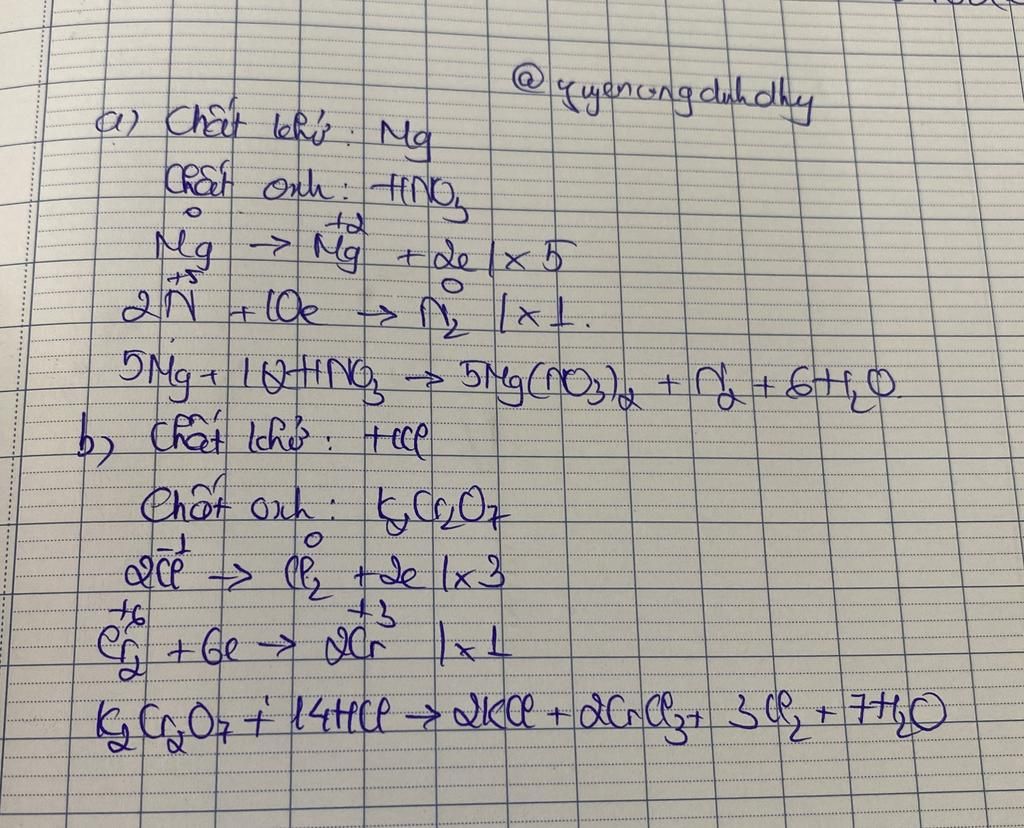 @quyencongchihdhy
a) Chất khử: Mg
Chất oxh: HNO₃
Mg⁰ → Mg⁺² + 2e | x 5
2N⁺⁵ + 10e → N₂⁰ | x 1.
5Mg + 12HNO₃ → 5Mg(NO₃)₂ + N₂ + 6H₂O
b) Chất khử: HCl
Chất oxh: K₂Cr₂O₇
2Cl⁻¹ → Cl₂⁰ + 2e | x 3
Cr₂⁺⁶ + 6e → 2Cr⁺³ | x 1
K₂Cr₂O₇ + 14HCl → 2KCl + 2CrCl₃ + 3Cl₂ + 7H₂O